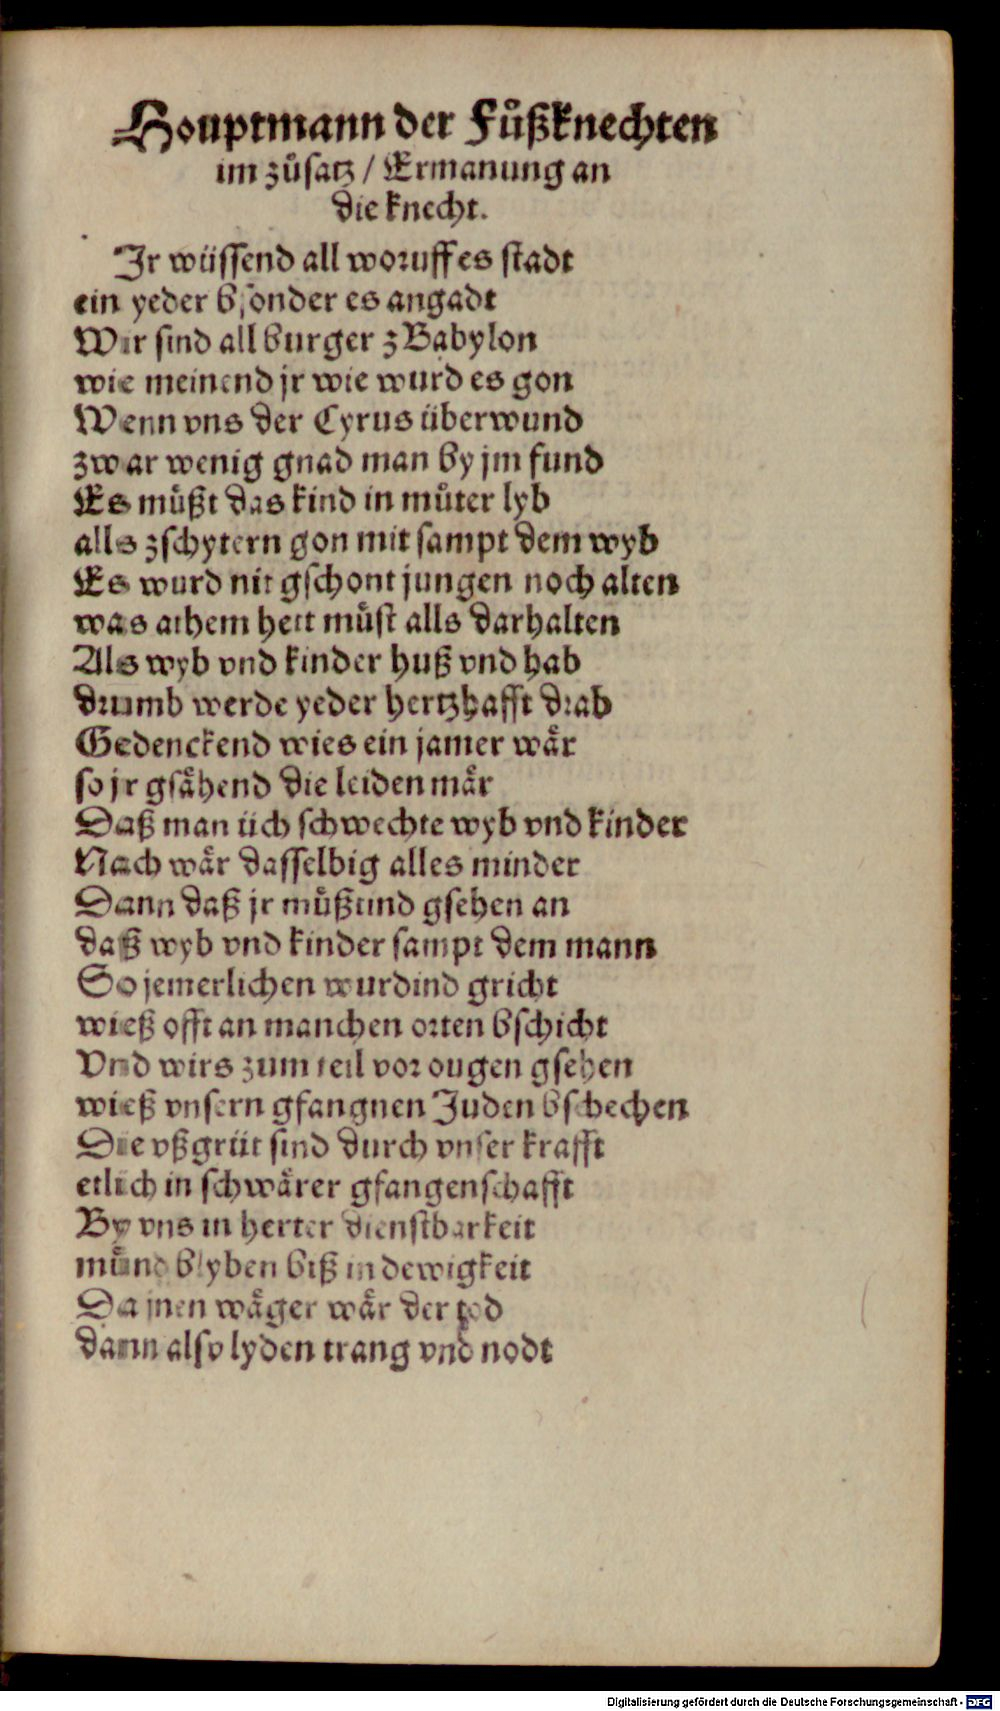 Houptmann der Fůßknechten
im zůsatz / Ermanung an
die knecht.
Jr wüssend all woruff es stadt
ein yeder bsonder es angadt
Wir sind all burger z Babylon
wie meinend jr wie wurd es gon
Wenn vns der Cyrus überwund
zwar wenig gnad man by jm fund
Es müßt das kind in můter lyb
alls zschytern gon mit sampt dem wyb
Es wurd nit gschont jungen noch alten
was athem hett můst alls darhalten
Als wyb vnd kinder huß vnd hab
drumb werde yeder hertzhafft drab
Gedenckend wies ein jamer wår
so jr gsåhend die leiden mår
Daß man üch schwechte wyb vnd kinder
Nach wår dasselbig alles minder
Dann daß jr müßtind gsehen an
daß wyb vnd kinder sampt dem mann
So jemerlichen wurdind gricht
wieß offt an manchen orten bschicht
Vnd wirs zum teil vor ougen gsehen
wieß vnsern gfangnen Juden bschechen
Die vßgrüt sind durch vnser krafft
etlich in schwårer gfangenschafft
By vns in herter dienstbarkeit
můnd blyben biß in dewigkeit
Da jnen wåger wår der tod
dann also lyden trang vnd nodt
Digitalisierung gefördert durch die Deutsche Forschungsgemeinschaft - DFG